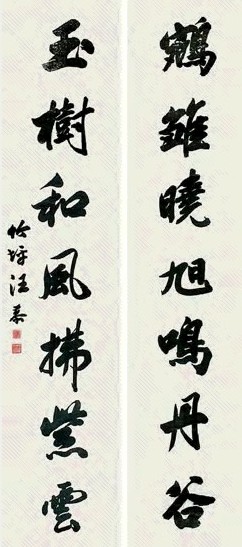 鵷雛曉旭鳴丹谷
玉樹和風拂紫雲
竹坪汪恭